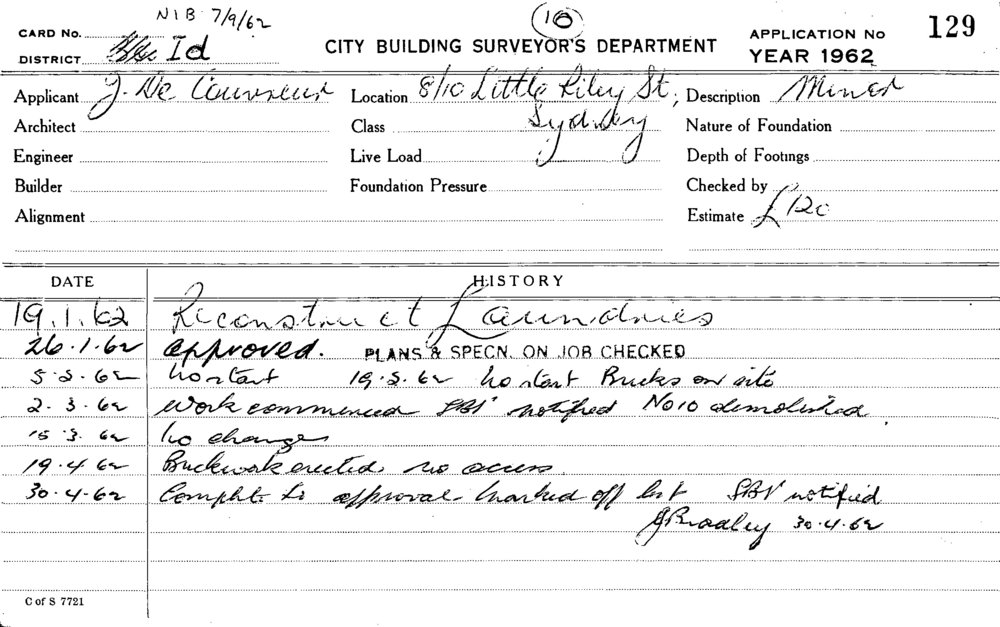 NIB 7/9/62
10
129
CARD No.
APPLICATION No
DISTRICT Id
CITY BUILDING SURVEYOR'S DEPARTMENT
YEAR 1962
Applicant J. De Couvreur Location 8/10 Little Riley St, Description Minor
Architect Class Sydney Nature of Foundation
Engineer Live Load Depth of Footings
Builder Foundation Pressure Checked by
Alignment Estimate £120
DATE HISTORY
19.1.62 Reconstruct Laundries
26.1.62 approved. PLANS & SPECN. ON JOB CHECKED
5.2.62 no start 19.2.62 no start Bricks on site
2.3.62 work commenced notified No 10 demolished
15.3.62 no change
19.4.62 Brickwork erected. no access.
30.4.62 Complt. to approval. marked off list notified
JBradley 30.4.62
C of S 7721